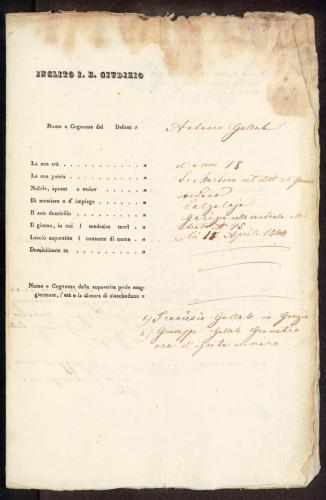 INCLITO I. R. GIUDIZIO
Nome e Cognome del Defunt " Antonio Gallob
La sua età . . . . . . . . . . . . " d'anni 78
La sua patria . . . . . . . . . . . " S. Martino
Nubile, sposat o vedov . . . . . . " vedovo
Di mestiere o d' impiego . . . . . . " calzolajo
Il suo domicilio . . . . . . . . . . " Gorizia nella contrada
Il giorno, in cui l medesim morì . . " Aprile
Lasciò superstite l consorte di nome . "
Domiciliante in . . . . . . . . . . "
Nome e Cognome della superstite prole mag-
giorenne, l' età e la dimora di ciascheduno "
1) Francesco Gallob in Gorizia
2) Giuseppe Gallob Geometra
ora d'ignota dimora